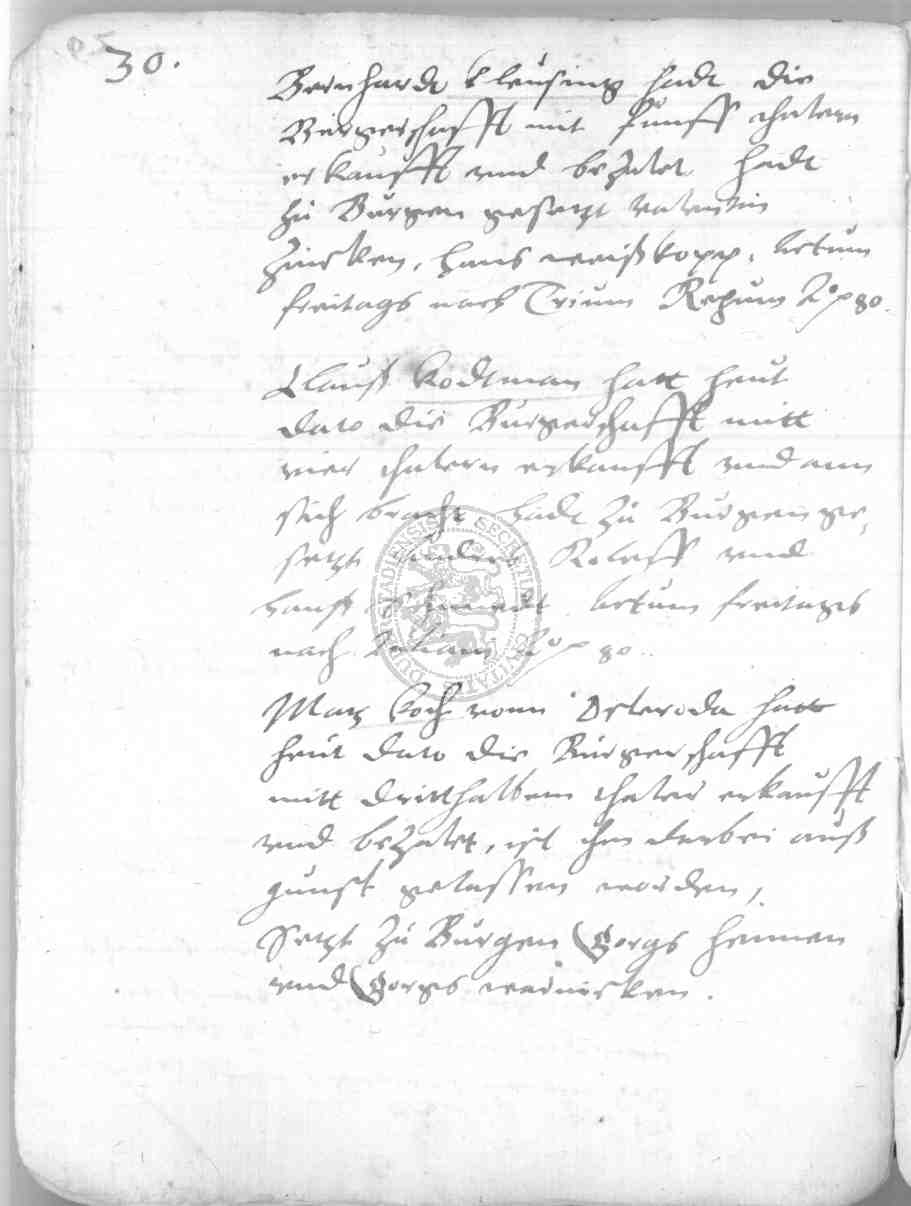 30.
Bernhardt Cleusing hadt die
Bürgerschafft mit fünff thalern
erkaufft und bezalet hadt
zu Bürgen gesetzt Valentin
Zincken, Hans weißkopp. Actum
freitags nach Trium Regum Aō p 80.
Clauß Kodtman hatt heut
dato die Burgerschafft mitt
vier thalern erkaufft und ann
sich bracht hadt zu Burgen ge,
setzt Roloff und
Hanß Schmedt Actum freitages
nach Aō p 80.
Matz Koch vonn Osteroda hatt
heut dato die Bürgerschafft
mitt dritthalbem thaler erkaufft
und bezalet, ist ihm darbei auß
gunst gelassen worden,
Setzt zu Bürgen Gorgs Hennen
und Gorgs
SECRETUM CIVITATIS DUDERSTADIENSIS